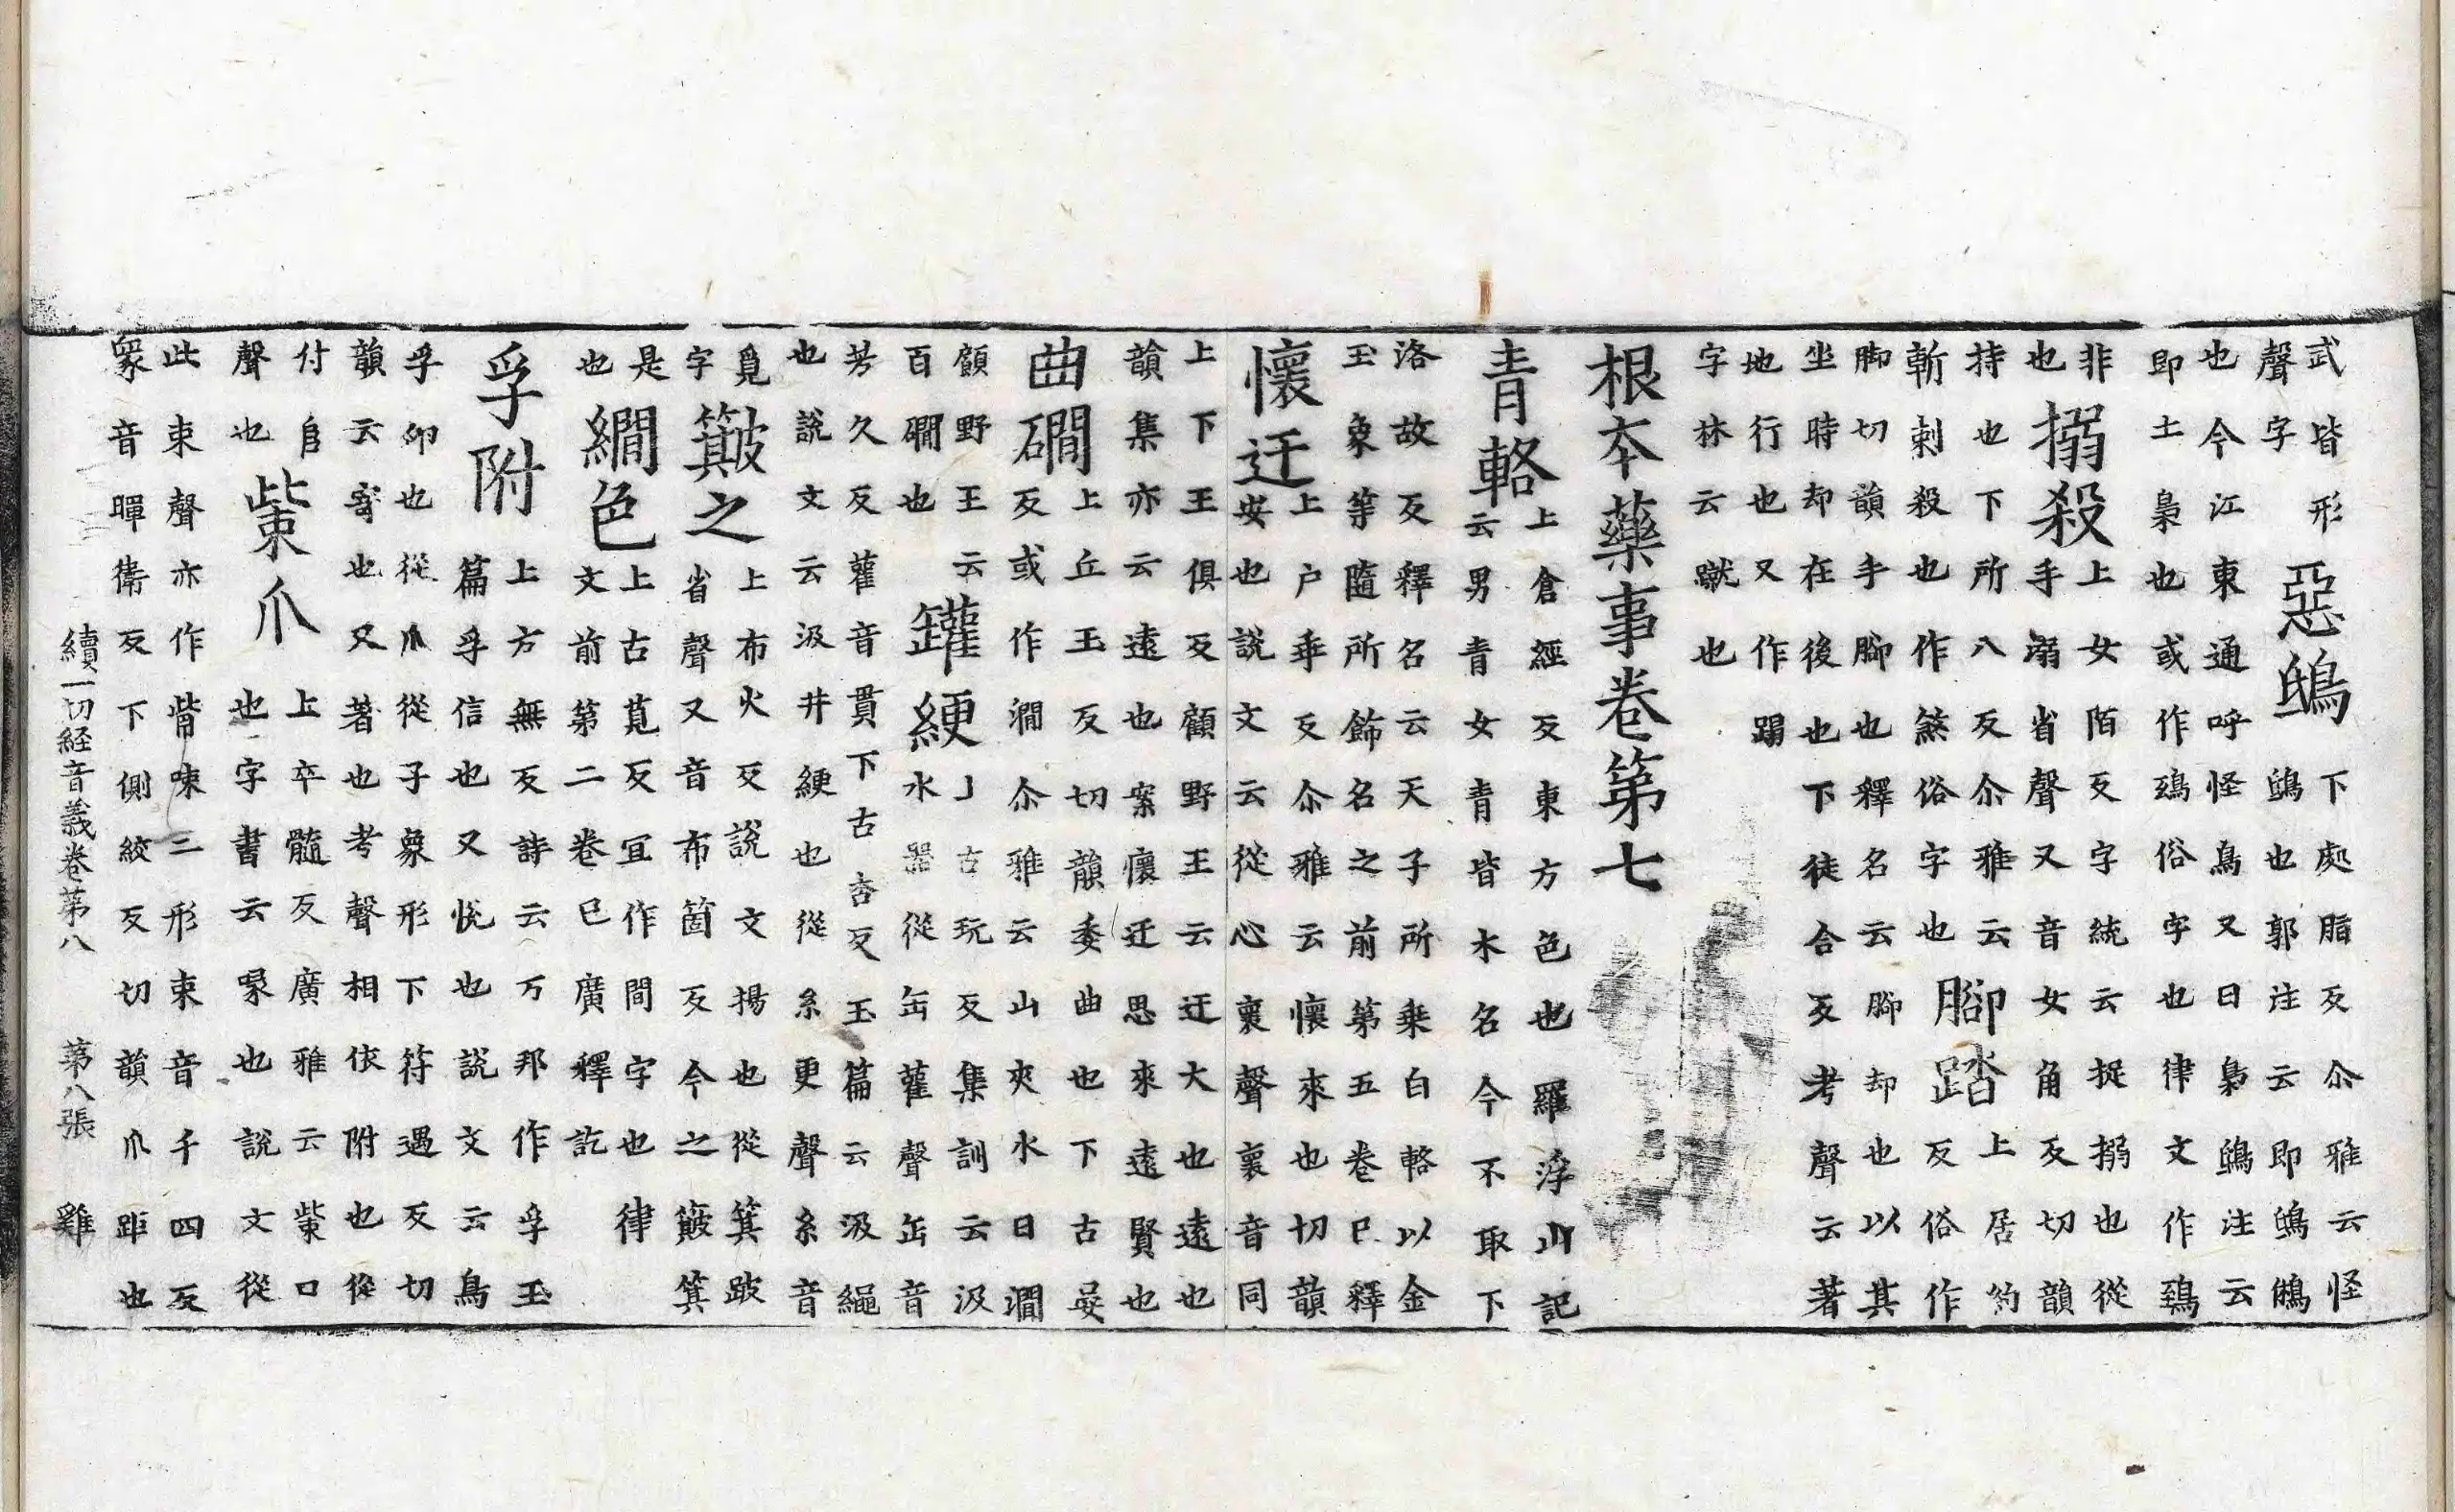 武皆形
聲字
惡鴟
下処脂反尒雅云怪
鴟也郭注云即鴟鵂
也今江東通呼怪鳥又曰梟鴟注云
即土梟也或作鵄俗字也律文作鵄
非
也
搦殺
上女陌反字統云捉搦也從
手溺省聲又音女角反切韻
持也下所八反尒雅云
斬刺殺也作煞俗字也
腳踏
上居約
反俗作
脚切韻手腳也釋名云腳却也以其
坐時却在後也下徒合反考聲云著
地行也又作蹋
字林云蹴也
根夲藥事卷第七
青輅
上倉經反東方色也羅浮山記
云男青女青皆木名今不取下
洛故反釋名云天子所乗白輅以金
玉象等隨所飾名之前第五卷巳釋
懷迂
上戶乖反尒雅云懷來也切韻
安也說文云從心褱聲褱音同
上下王俱反顧野王云迂大也遠也
韻集亦云遠也案懷迂思來遠賢也
曲磵
上丘玉反切韻委曲也下古晏
反或作澗尒雅云山夾水曰澗
顧野王云
百磵也
罐綆
丄古玩反集訓云汲
水器從缶雚聲缶音
芳久反雚音貫下古杏反玉篇云汲繩
也說文云汲井綆也從糸更聲糸音
覓
字
簸之
上布火反說文揚也從箕跛
省聲又音布箇反今之簸箕
是
也
繝色
上古莧反冝作間字也律
文前第二卷巳廣釋訖
孚附
上方無反詩云万邦作孚玉
篇孚信也又悅也說文云鳥
孚卵也從爪從子象形下符遇反切
韻云寄也又著也考聲相依附也從
付𠂤
聲也
㭰爪
上卒髓反廣雅云㭰口
也字書云㖢也說文從
此朿聲亦作觜㖢二形朿音千四反
衆音暉衛反下側絞反切韻爪距也
續一切経音義卷第八 第八張 雞